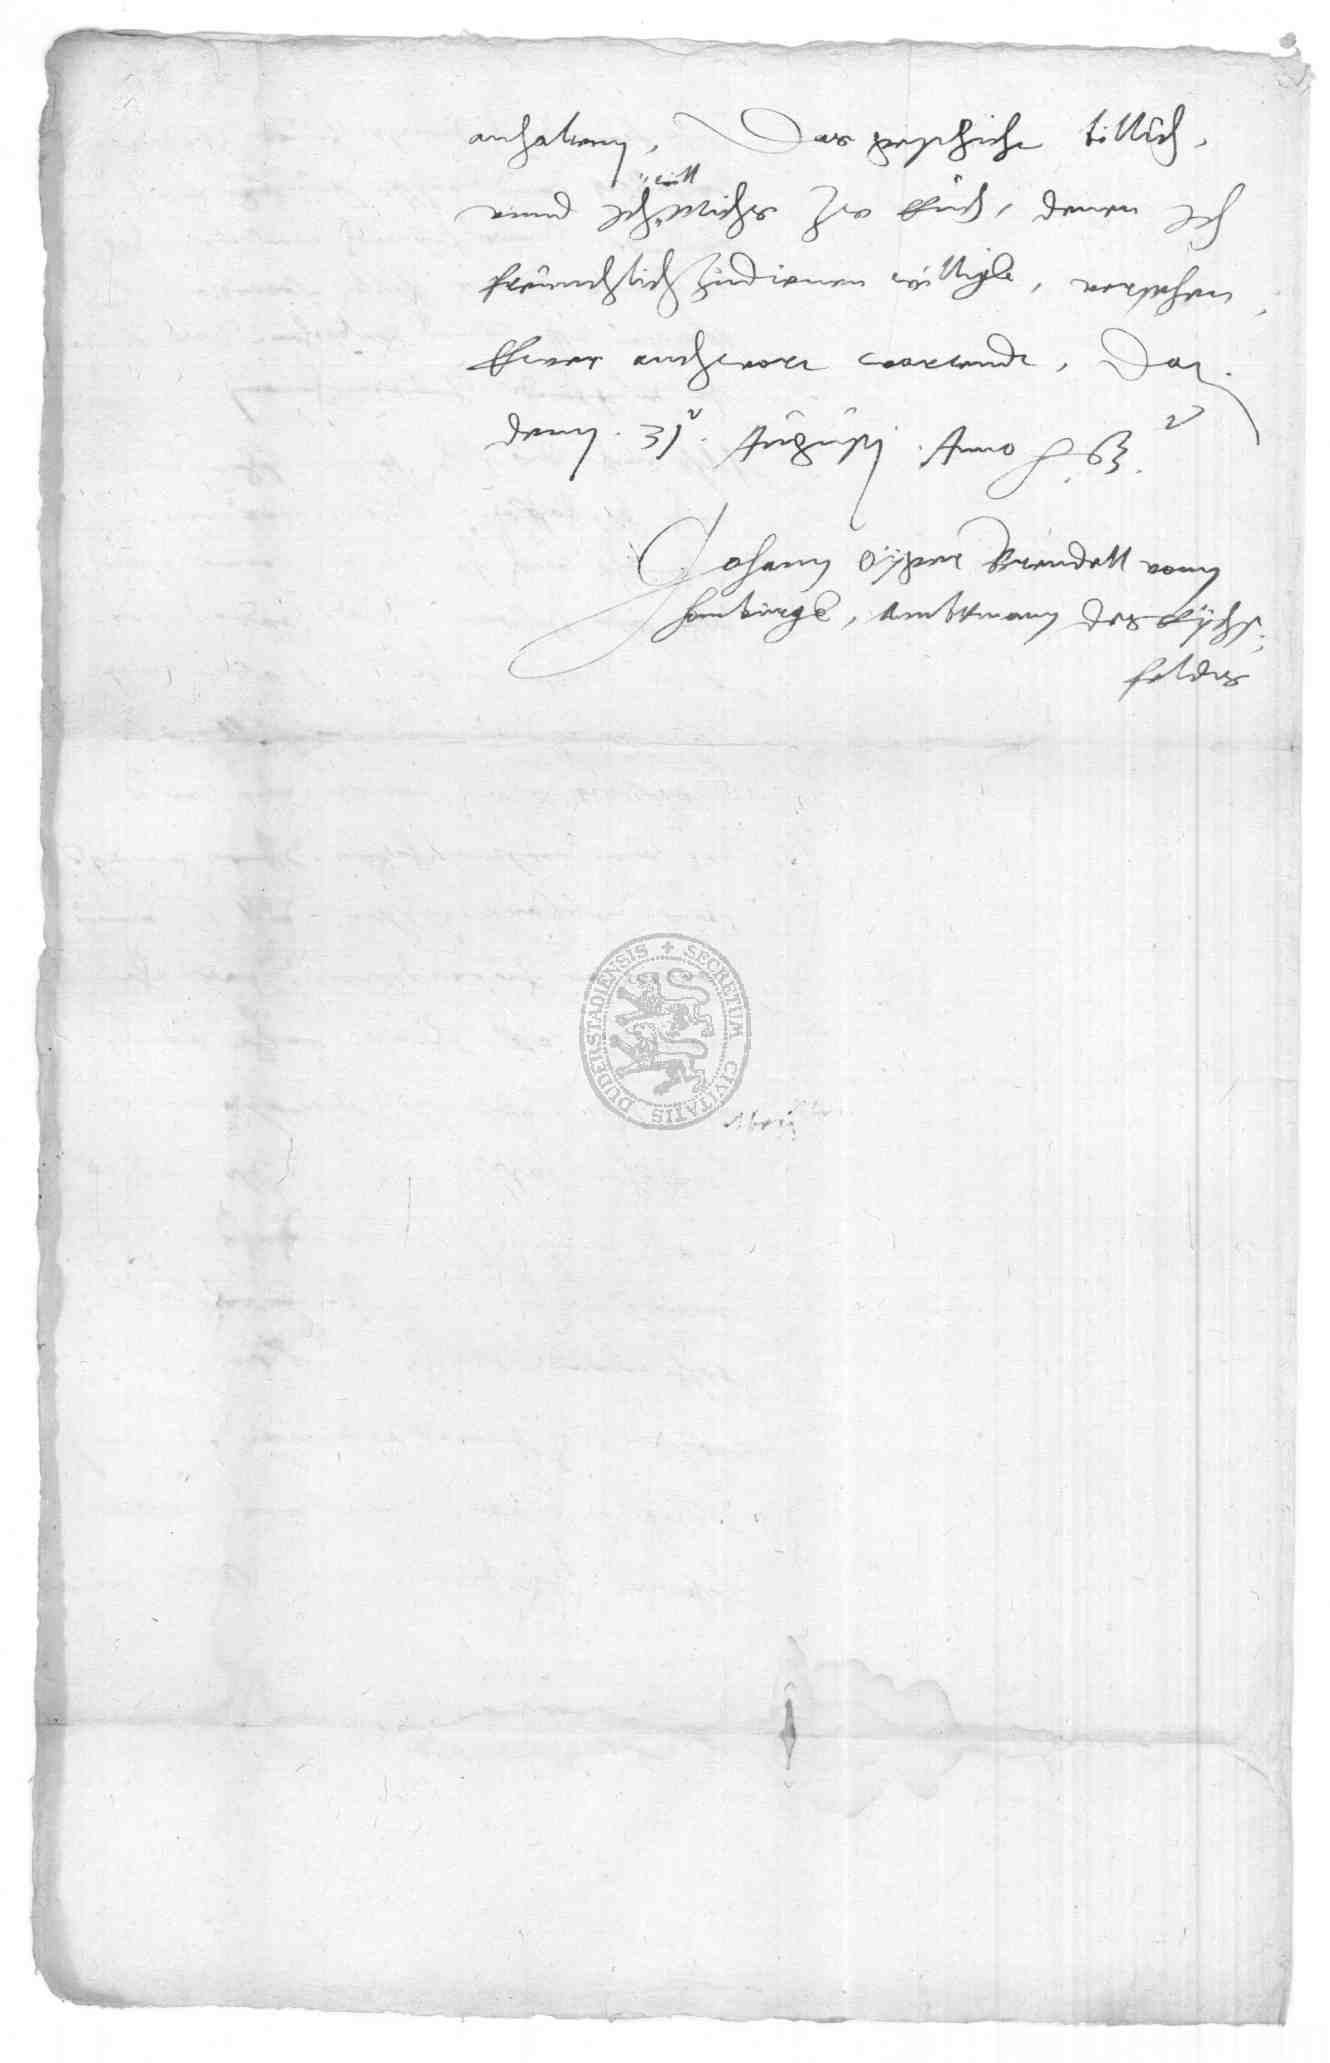 anhaltenn, Das geschicht billich,
will
vnnd Ich michs zu Euch, denen Ich
freundtlich zudienen willigk, versehen,
Ewer andtwort wartende, Dat.
denn 31 Augusti Anno 63
Johann Oyger Brendell vonn
Homburgk, Ambtmann des Eychs,,
feldes
SECRETUM CIVITATIS DUDERSTADIENSIS